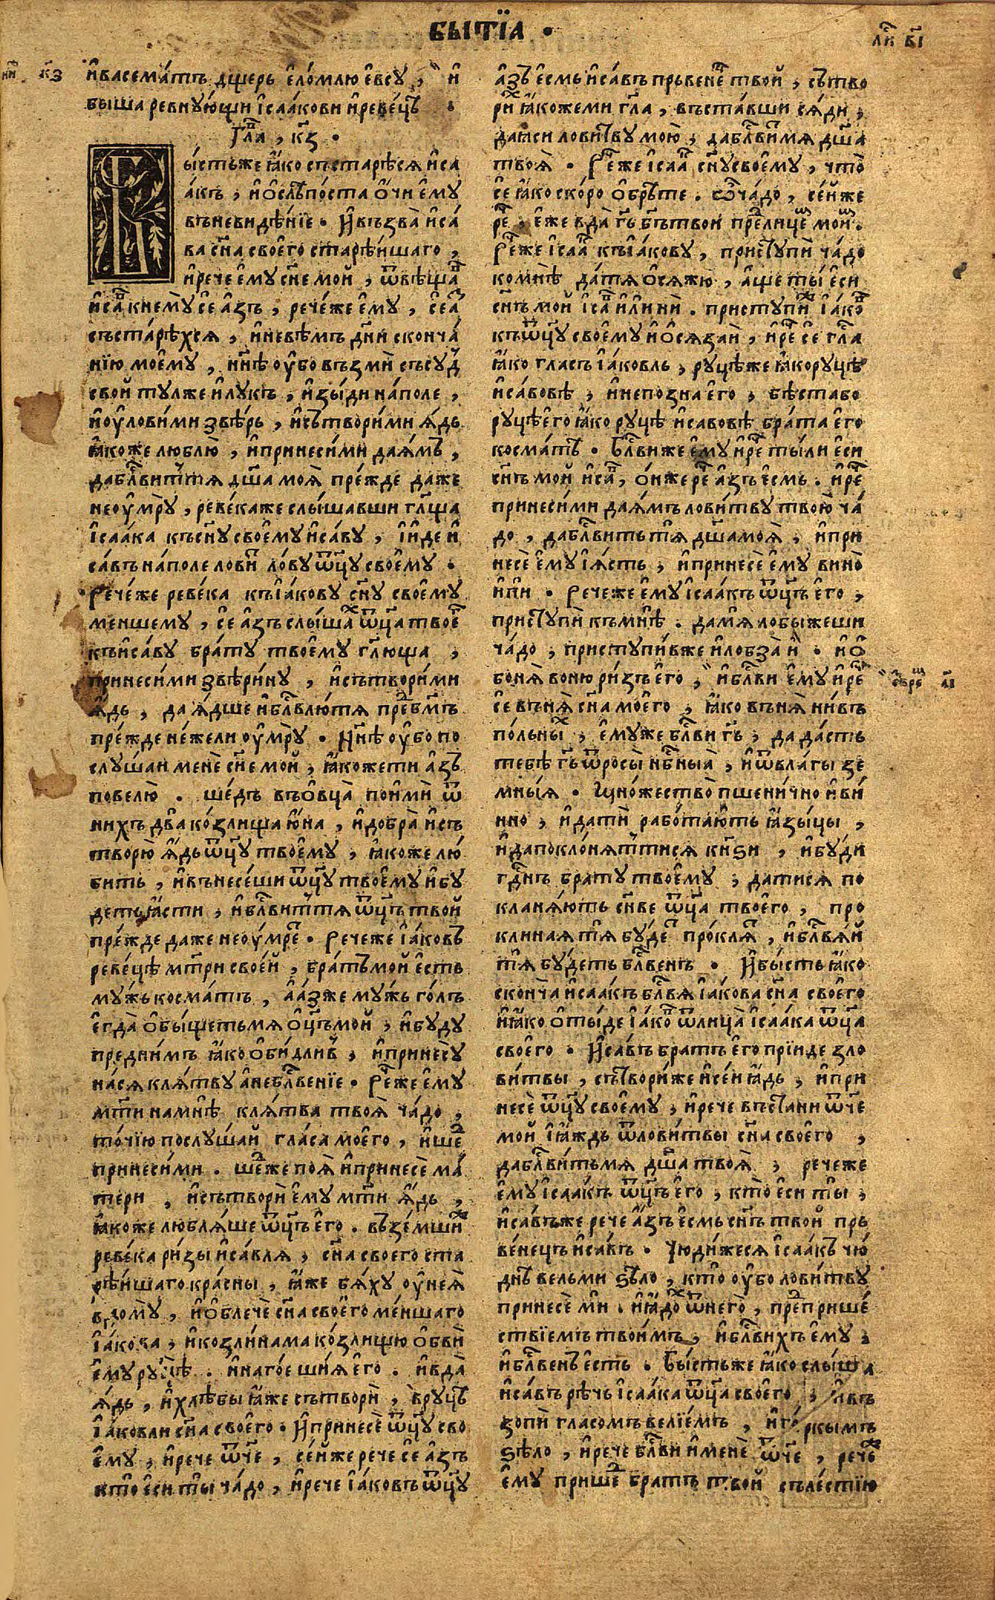 БЫТЇА ·
ли҆ в҃і
и҆васема́тъ дщерь є҆ло́млю є҆ве́у , и҆
бы́ша ревну́ющи і҆саа́кови и҆реве́цѣ ·
Гла҃ , к҃з ·
Бы́стьже ꙗ҆́ко състарѣ́сѧ и҆са
а́къ , и҆ѡ҆слѣпо́ста ѻ҆́чи є҆мꙋ̀
въневи́дѣнїе · И҆възва̀ и҆са́
ва сн҃а своего̀ старѣ́йшаго ,
и҆речѐ є҆мꙋ̀ сн҃е мой , ѿвѣща
и҆са́въ кнемꙋ̀ сѐ а҆́зъ , рече́же є҆мꙋ̀ , сѐ а҆́зъ
състарѣ́хсѧ , и҆невѣ́мъ дн҃и сконча́
нїю моемꙋ̀ , нн҃ѣ ᲂу҆́бо възмѝ съсꙋ́д
свой тꙋ́лже и҆лꙋ́къ , и҆зы́ди на́поле ,
и҆ᲂу҆лови́ми звѣ́рь , и҆сътвори́ми ꙗ҆́дь
ꙗ҆́коже люблю̀ , и҆принеси́ми да ꙗ҆́мъ ,
дабл҃ви́титѧ дш҃а моѧ̀ пре́жде да́же
неᲂу҆́мрꙋ , реве́каже слы́шавши гл҃ща
і҆саа́ка късн҃ꙋ своемꙋ̀ и҆са́вꙋ , и҆и́де и҆
са́въ на́поле лови́ти ло́вꙋ ѿц҃ꙋ своемꙋ̀ ·
Рече́же реве́ка къі҆а́ковꙋ сн҃ꙋ своемꙋ̀
ме́ншемꙋ , сѐ а҆́зъ слы́шахъ ѿц҃а твоего̀
къи҆са́вꙋ бра́тꙋ твоемꙋ̀ гл҃юща ,
принеси́ми звѣри́нꙋ , и҆сътвори́ми
ꙗ҆́дь , да ꙗ҆́дше и҆бл҃влю́тѧ пре́дбг҃мъ
пре́жде не́жели ᲂу҆́мрꙋ · Нн҃ѣ ᲂу҆́бо по
слꙋ́шаи менѐ сн҃е мой , ꙗ҆́кожети а҆́зъ
повелю̀ · ше́дъ въѻ҆́вца пои҆мѝ ѿ
ни́хъ два̀ ко́злища ю҆́на , и҆добра̀ и҆съ
творю̀ ꙗ҆́дь ѿц҃ꙋ твоемꙋ̀ , ꙗ҆́коже лю́
бить , и҆вънесе́ши ѿц҃ꙋ твоемꙋ̀ и҆бꙋ́
деть ꙗ҆́сти , и҆бл҃ви́титѧ ѿц҃ъ твой
пре́жде да́же неᲂу҆́мрет · Рече́же і҆а́ковъ
реве́цѣ мт҃ри свое́й , бра́тъ мой є҆́сть
мꙋ́жь косма́тъ , а҆а҆́зже мꙋ́жь го́лъ
є҆гда̀ ѡ҆бы́щетьмѧ ѻ҆ц҃ъ мой , и҆бꙋ́дꙋ
предни́мъ ꙗ҆́ко ѡ҆би́дливъ , и҆принесꙋ̀
на́сѧ клѧ́твꙋ а҆небл҃ве́нїе · Рече́же є҆мꙋ̀
мт҃и намнѣ̀ клѧ́тва твоѧ̀ ча́до ,
то́чїю послꙋ́шай гла́са моего̀ , и҆ше́д
принеси́ми · ше́дже поѧ̀ и҆принесѐ ма́
тери , и҆сътворѝ є҆мꙋ̀ мт҃и ꙗ҆́дь ,
ꙗ҆́коже люблѧ́ше ѿц҃ъ є҆го̀ · възе́мши
реве́ка ри́зы и҆са́влѧ , сн҃а своего̀ ста
рѣ́йшаго кра́сны , ꙗ҆́же бѧ́хꙋ ᲂу҆неѧ̀
вдомꙋ̀ , и҆ѡ҆блечѐ сн҃а своего̀ ме́ншаго
і҆а́кова , и҆козли́нама ко́злищю ѡ҆бвѝ
є҆мꙋ рꙋ́цѣ · и҆наго́е шиѧ є҆го̀ · и҆вда̀
ꙗ҆́дь , и҆хлѣ́бы ꙗ҆́же сътворѝ , врꙋ́цѣ
і҆а́ковли сн҃а своего̀ · И҆принесѐ ѿц҃ꙋ сво
емꙋ̀ , и҆речѐ ѿч҃е , се́йже речѐ сѐ а҆́зъ
кто̀ є҆сѝ ты̀ ча́до , и҆речѐ і҆а́ковъ ѿц҃ꙋ
а҆́зъ є҆́смь и҆са́въ пръвене́ц твой , сътво
ри́х ꙗ҆́кожеми гл҃а , въста́вши сѧ́ди ,
да ꙗ҆́си лови́твꙋ мою̀ , дабл҃ви́мѧ дш҃а
твоѧ̀ · Рече́же і҆саа́к сн҃ꙋ своемꙋ̀ , что̀
сѐ ꙗ҆́ко ско́ро ѡ҆брѣ́те · ѽча́до , се́йже
рече , є҆́же вда̀ гь҃ бг҃ъ твои пре́длице́м мои́м ·
Рече́же і҆саа́к къі҆а́ковꙋ , пристꙋпѝ ча́до
комнѣ̀ да́тѧ ѡ҆сѧ́жю , а҆́ще ты̀ є҆сѝ
сн҃ъ мой и҆са́в и҆лѝ нѝ · пристꙋпи́ж і҆а́ков
къѿц҃ꙋ своемꙋ̀ и҆ѡ҆сѧза́й , и҆ре́ч сѐ гла́с
ꙗ҆́ко гла́съ і҆а́ковль , рꙋ́цѣже ꙗ҆́ко рꙋ́цѣ
и҆са́вовѣ , и҆непозна̀ є҆го̀ , бѣ́стабо
рꙋ́цѣ є҆го̀ ꙗ҆́ко рꙋ́цѣ и҆са́вовѣ бра́та є҆го̀
косма́тѣ · Бл҃ви́же є҆мꙋ̀ и҆ре́ч ты́ли є҆сѝ
сн҃ъ мой и҆са́в , ѻ҆́нже ре́ч а҆́зъ є҆́смь · и҆ре́ч
принеси́ми да ꙗ҆́мъ лови́твꙋ твою̀ ча́
до , дабл҃ви́ть тѧ̀ дш҃а моѧ̀ , и҆при
несѐ є҆мꙋ̀ і҆ꙗ҆́сть , и҆принесѐ є҆мꙋ̀ вино̀
и҆пи · Рече́же є҆мꙋ̀ і҆саа́къ ѿц҃ъ є҆го̀ ,
пристꙋпѝ къмнѣ̀ · да́мѧ лобы́жеши
ча́до , пристꙋпи́вже и҆лобза̀ и҆̀ · и҆ѡ҆
бонѧ̀ во́ню ри́зъ є҆го̀ , и҆бл҃вѝ є҆мꙋ̀ и҆ре́ч
сѐ вънѧ̀ сн҃а моего̀ , ꙗ҆́ко вънѧ̀ ни́въ
польны́х , є҆мꙋ́же бл҃вѝ гь҃ , да да́сть
тебѣ̀ гь҃ ѿросы̀ нб҃ныѧ̀ , и҆ѿвла́гы зе
мны́ѧ · И҆мно́жество̀ пшени́чно и҆ви́
нно , и҆датѝ рабо́тають ꙗ҆зы́цы ,
и҆дапокло́нѧттисѧ кн҃ѕи , и҆бꙋ́ди
гд҃нъ бра́тꙋ твоемꙋ̀ , дати́сѧ по
кланѧ́ють сн҃ве ѿц҃а твоего̀ , про
клина́ѧ тѧ̀ бꙋ́дет про́клѧт , и҆бл҃вѧ́й
тѧ̀ бꙋ́деть бл҃ве́нъ · И҆бы́сть ꙗ҆́ко
сконча̀ и҆саа́къ бл҃вѧ̀ і҆а́кова сн҃а своего̀
и҆ꙗ҆́ко ѿы́де і҆а́ков ѿлица̀ і҆саа́ка ѿц҃а
своего̀ · И҆са́въ бра́тъ є҆го̀ прїи́де зло
ви́твы , сътвори́же и҆се́и ꙗ҆́дь , и҆при
несѐ ѿц҃ꙋ своемꙋ̀ , и҆речѐ въста́ни ѿч҃е
мой і҆ꙗ҆́ждь ѿлови́твы сн҃а своего̀ ,
дабл҃ви́тьмѧ дш҃а твоѧ̀ , рече́же
є҆мꙋ̀ і҆саа́къ ѿц҃ъ є҆го̀ , кто̀ є҆сѝ ты̀ ,
и҆са́въже речѐ а҆́зъ є҆́смь сн҃ъ твой пръ
ве́нець и҆са́въ · Чюди́жесѧ і҆саа́къ чю́
днъ вельмѝ ѕѣлѡ̀ , кто̀ ᲂу҆́бо лови́твꙋ
принесѐ мѝ · и҆ꙗдо́х ѿнего̀ , пре́дприше́
ствїемъ твои́мъ , и҆бл҃ви́хъ є҆мꙋ̀ ,
и҆бл҃ве́нъ є҆́сть · Бы́стьже ꙗ҆́ко слы́ша
и҆са́въ рѣ́чь і҆саа́ка ѿц҃а своего̀ , и҆въ
зопѝ гла́сомъ ве́лїемъ , и҆го́рькымъ
ѕѣ́ло , и҆речѐ бл҃вѝ и҆менѐ ѿч҃е , рече́ж
є҆мꙋ̀ прише́д бра́тъ твой съле́стїю